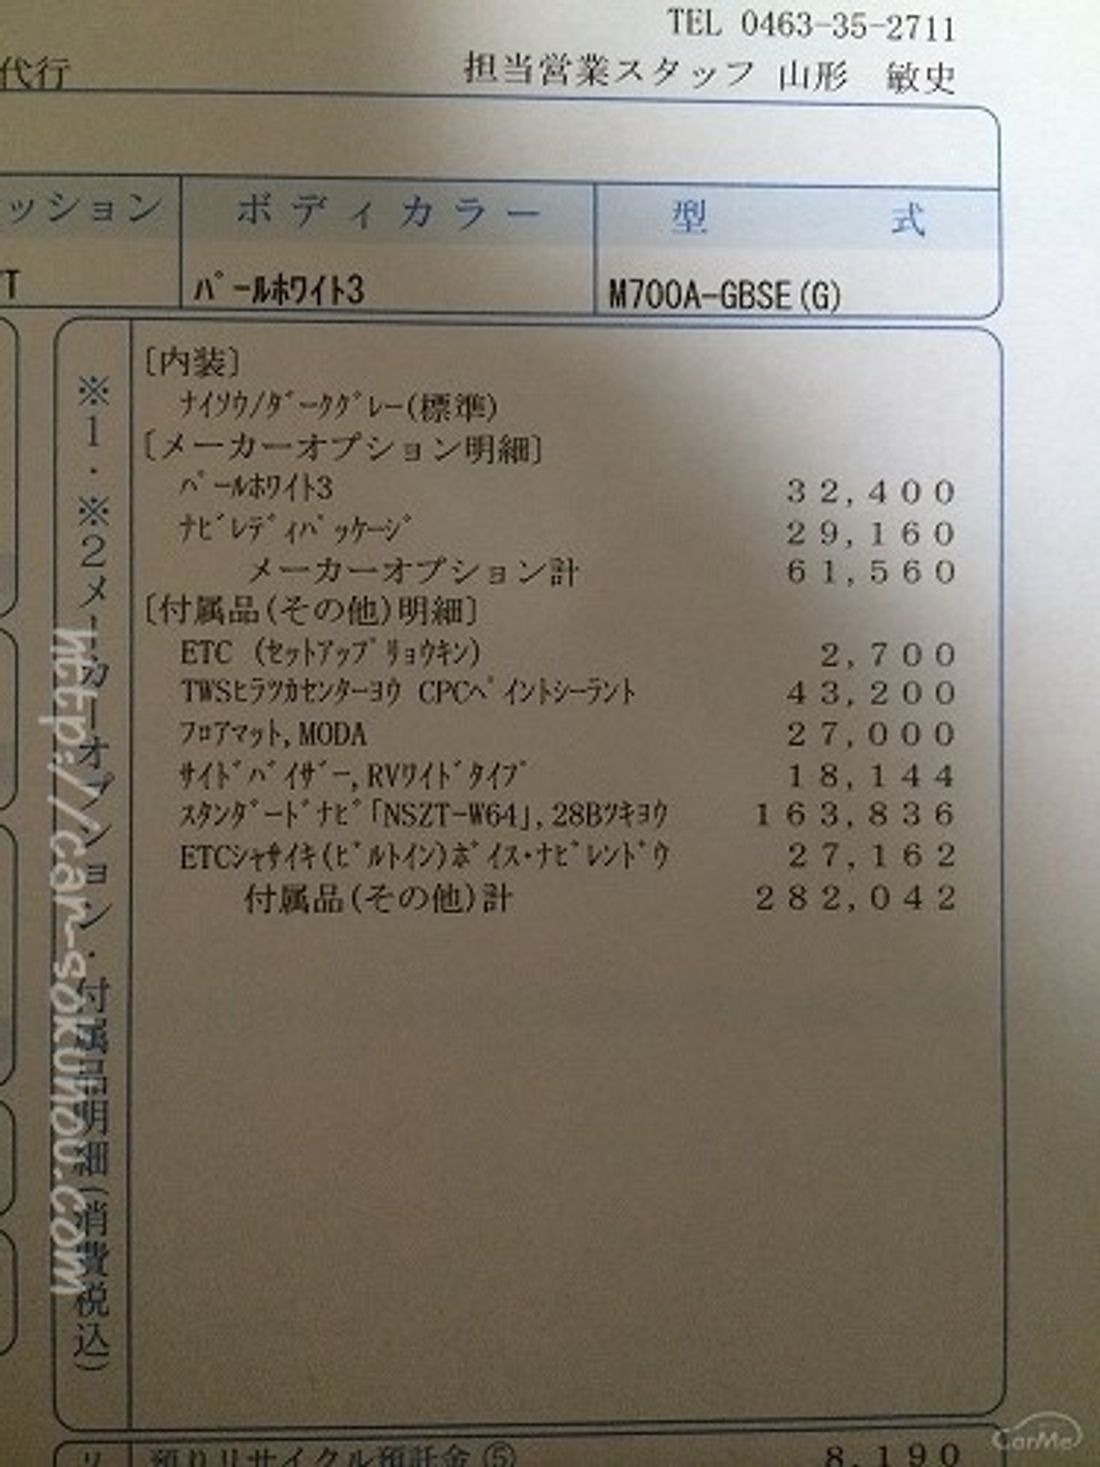 TEL 0463-35-2711
代行
担当営業スタッフ 山形 敏史
ッション ボディカラー 型 式
T ﾊﾟｰﾙﾎﾜｲﾄ3 M700A-GBSE(G)
※1・※2メーカーオプション・付属品明細(消費税込)
[内装]
ﾅｲｿｳ/ﾀﾞｰｸｸﾞﾚｰ(標準)
[メーカーオプション明細]
ﾊﾟｰﾙﾎﾜｲﾄ3 32,400
ﾅﾋﾞﾚﾃﾞｨﾊﾟｯｹｰｼﾞ 29,160
メーカーオプション計 61,560
[付属品(その他)明細]
ETC (ｾｯﾄｱｯﾌﾟﾘｮｳｷﾝ) 2,700
TWSﾋﾗﾂｶｾﾝﾀｰﾖｳ CPCﾍﾟｲﾝﾄｼｰﾗﾝﾄ 43,200
ﾌﾛｱﾏｯﾄ,MODA 27,000
ｻｲﾄﾞﾊﾞｲｻﾞｰ,RVﾜｲﾄﾞﾀｲﾌﾟ 18,144
ｽﾀﾝﾀﾞｰﾄﾞﾅﾋﾞ｢NSZT-W64｣,28Bﾂｷﾖｳ 163,836
ETCｼｬｻｲｷ(ﾋﾞﾙﾄｲﾝ)ﾎﾞｲｽ･ﾅﾋﾞﾚﾝﾄﾞｳ 27,162
付属品(その他)計 282,042
リ 預りリサイクル預託金⑤ 8,190
http://car-sokuhou.com
CarMe